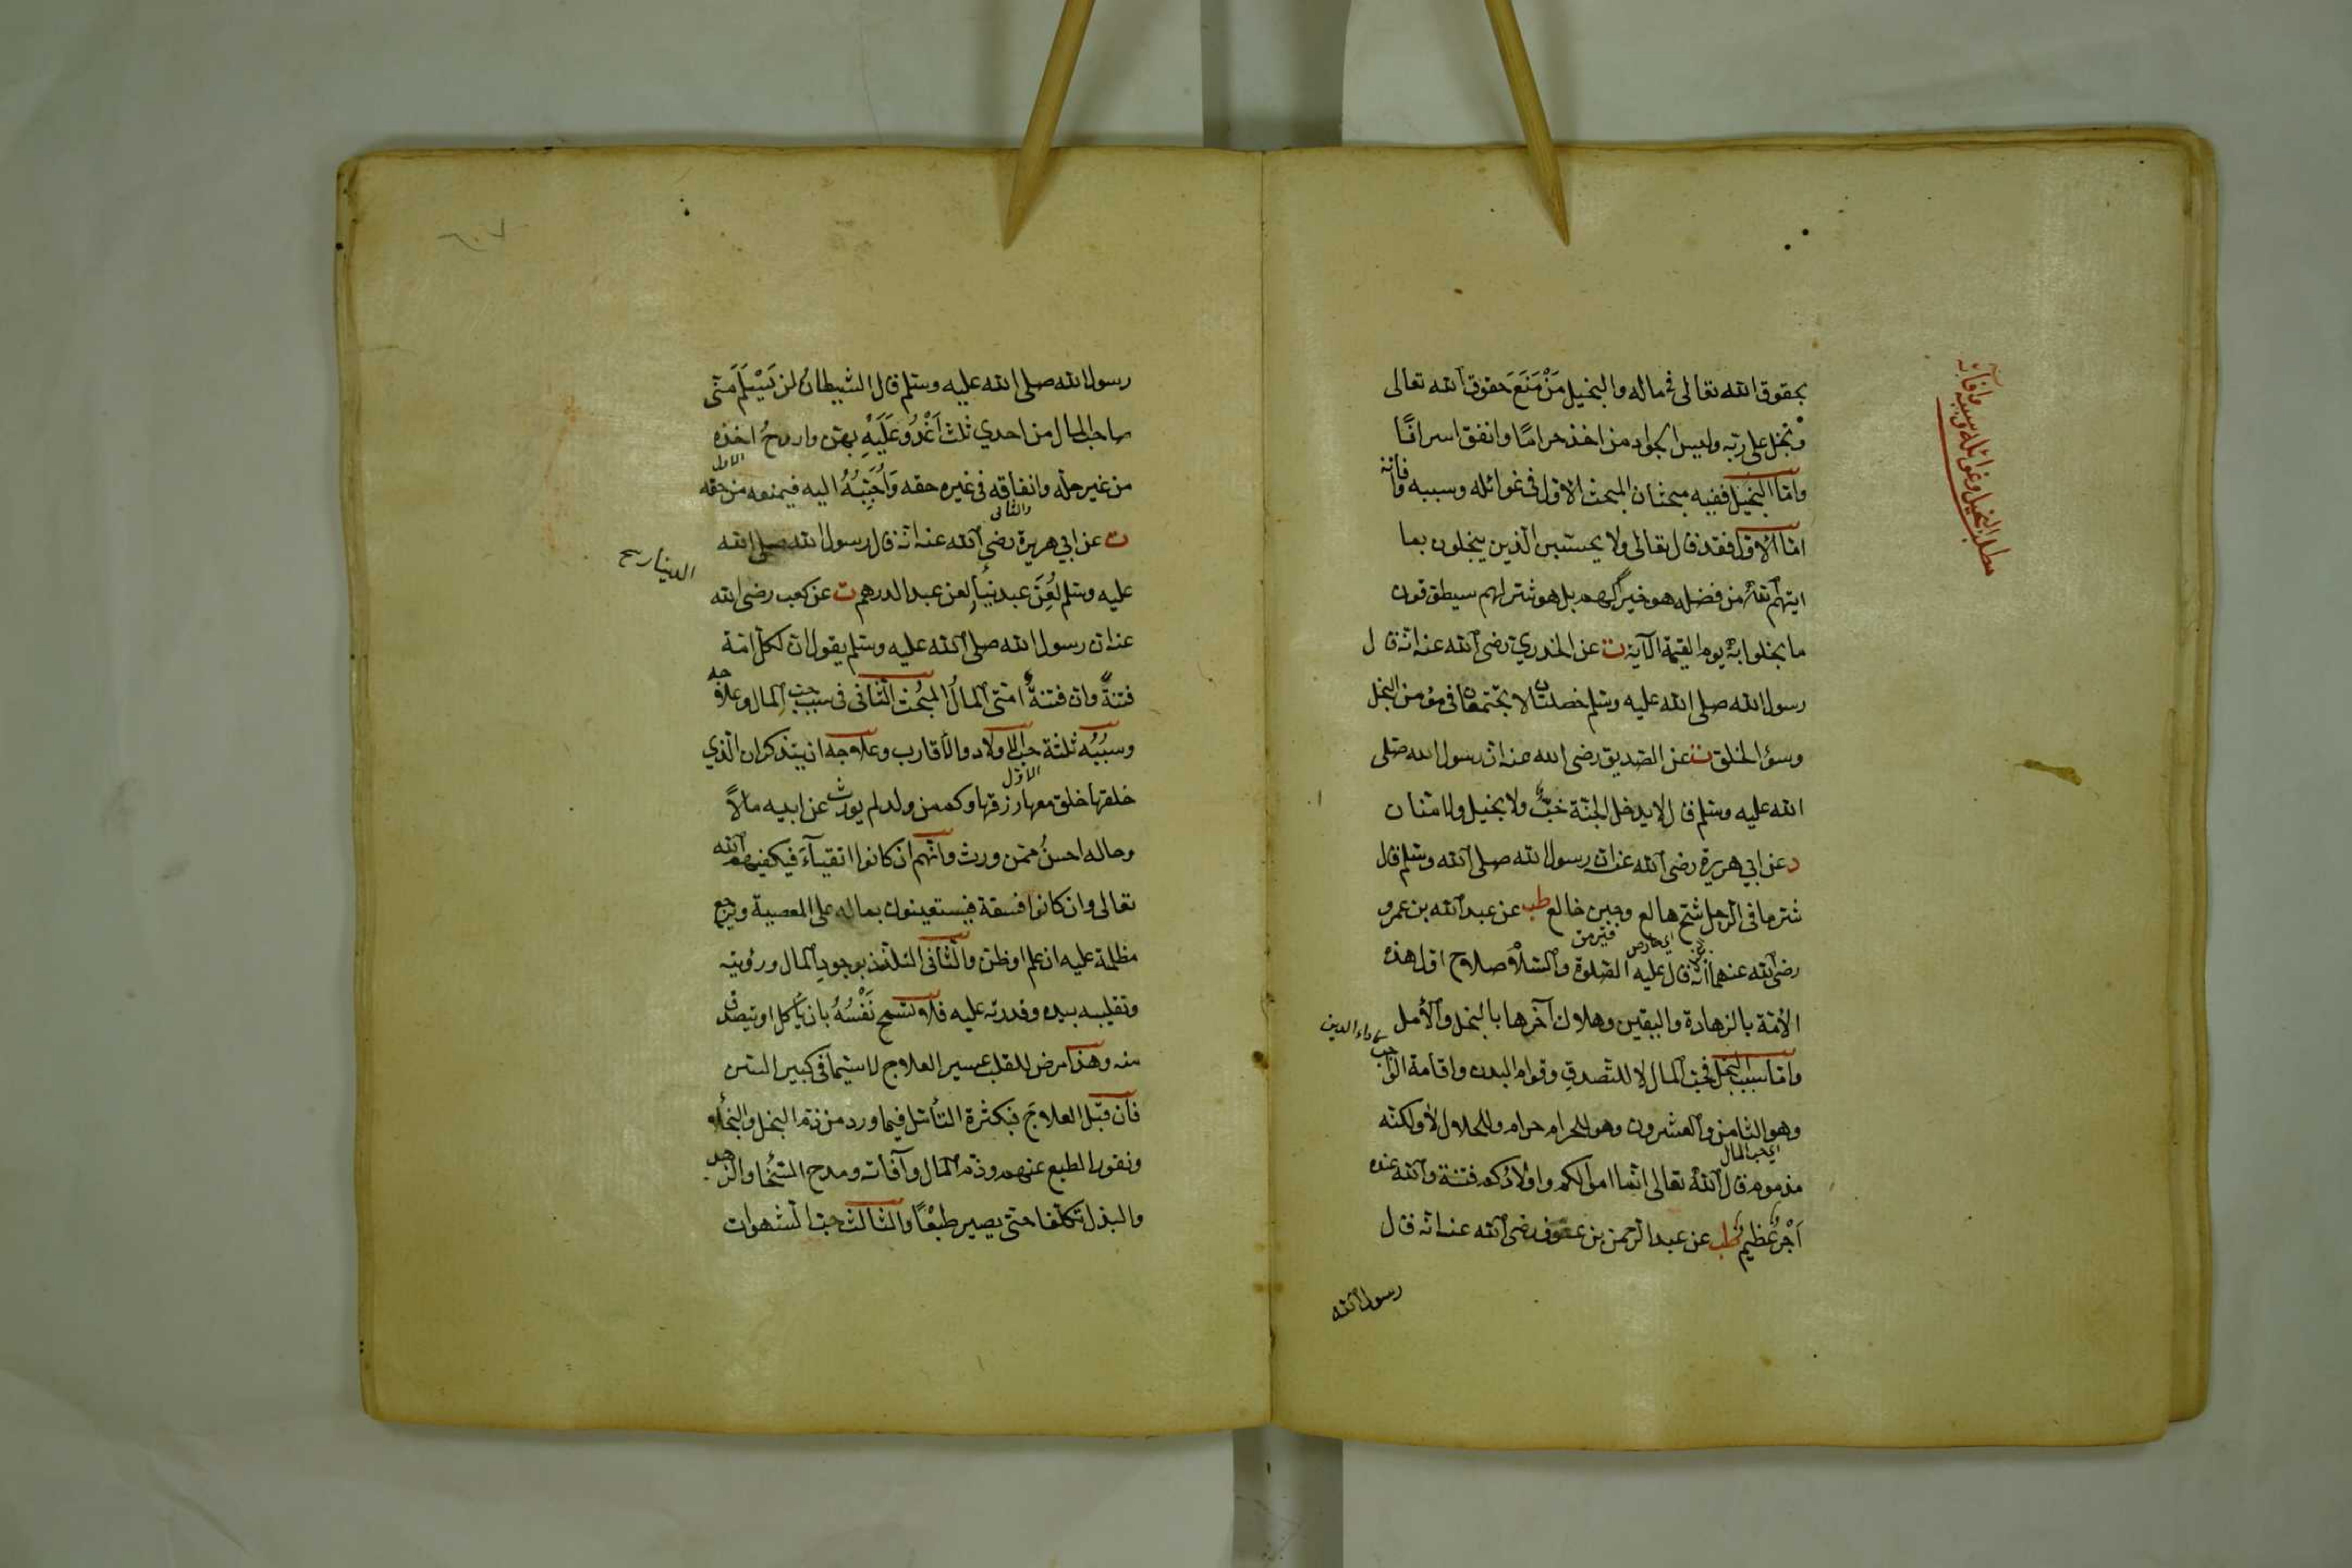 بحقوق الله تعالى في ماله والبخيل مَنْ مَنَعَ حقوق الله تعالى
وبخل على ربه وليس الجواد من اخذ حراما وانفق اسرافًا
وامّا البخيل ففيه مبحثان المبحث الاوّل في غوائله وسببه وآفاته
امّا الاوّل فقد قال تعالى ولا يحسبن الّذين يبخلون بما
ايتهم الله من فضله هو خيرًا لهم بل هو شرّ لهم سيطوّقون
ما بخلوا به يوم القيمة الآية ت عن الخدري رضى الله عنه انّه قال
رسول الله صلى الله عليه وسلم خصلتان لا يجتمعان في مؤمن البخل
وسوء الخلق ت عن الصّديق رضى الله عنه ان رسول الله صلى
الله عليه وسلم قال لا يدخل الجنّة خبٌّ ولا بخيل ولا منّان
د عن ابي هريرة رضى الله عنه ان رسول الله صلى الله وسلم قال
شرّ ما في الرّجل شحّ هالع وجبن خالع طب عن عبد الله بن عمرو
اى حارص
رضى الله عنهما انّه قال عليه الصّلوة والسّلام صلاح اوّل هذه
الامّة بالزهادة واليقين وهلاك آخرها بالبخل والأمل
كاداء الدين
وامّا سبب البخل فحبّ المال لا للتصدق وقوام البدن واقامة الواجب
وهو الثّامن والعشرون وهو للحرام حرام وللحلال لا ولكنّه
اى حب المال
مذموم قال الله تعالى انّما اموالكم واولادكم فتنة والله عنده
اَجْرٌ عظيم طب عن عبد الرّحمن بن عوف رضى الله عنه انّه قال
رسول الله
مطلب البخيل وغوائله وسببه وآفاته
رسول الله صلى الله عليه وسلم قال الشيطان لن يَسْلَمَ منّى
صاحب المال من احدي ثلث اَغْدُو عَلَيْهِ بهنّ واروحُ اخذه
الاول
من غير حلّه وانفاقه في غيره حقه وَاُحَبِّبُهُ اليه فيمنعه من حقه
والثانى
ت عن ابي هريرة رضى الله عنه انّه قال رسول الله صلى الله
الدينار صح
عليه وسلم لُعِنَ عبد دينار لعن عبد الدرهم ت عن كعب رضى الله
عنه ان رسول الله صلى الله عليه وسلم يقول ان لكلّ امّة
فتنةً وان فتنةُ امّتى المالُ المبحث الثّانى في سبب حب المال وعلاجه
وسببُه ثلثة حبّ الاولاد والأقارب وعلاجه ان يتذكر ان الّذي
الاوّل
خلقها خلق معها رزقها وكم من ولد لم يورث عن ابيه مالاً
وحاله احسنُ ممّن ورث وانّهم ان كانوا اتقيآءَ فيكفيهم الله
تعالى وان كانوا فسقة فيستعينون بماله على المعصية ويرجع
مظلمة عليه ان علم او ظنّ والثّانى التلذذ بوجود المال ورؤيته
وتقليبه بيده وقدرته عليه فلا تسمح نَفْسُهُ بان يأكل او يتصدق
منه وهذا مرض للقلب عسير العلاج لا سيّما في كبير السّن
فان قبّل العلاجَ فبكثرة التأمّل فيما ورد من ذمّ البخل والبخلاء
ونفور الطبع عنهم وذمّ المال وآفاته ومدح السّخا والزهد
والبذل تكلّفا حتّى يصير طبعًا والثالث حبّ الشّهوات